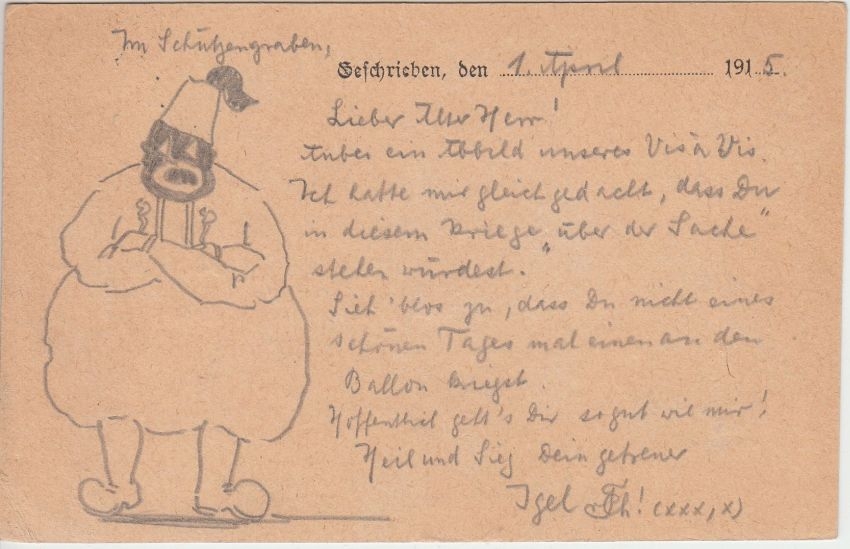 Im Schützengraben,
Geschrieben, den 1. April 1915.
Lieber Alter Herr!
Anbei ein Abbild unseres Vis à Vis.
Ich hatte mir gleich gedacht, dass Du
in diesem Kriege „über der Sache“
stehen würdest.
Sieh' blos zu, dass Du nicht eines
schönen Tages mal einen an den
Ballon kriegst.
Hoffentlich geht's Dir so gut wie mir!
Heil und Sieg Dein getreuer
Igel (xxx, x)